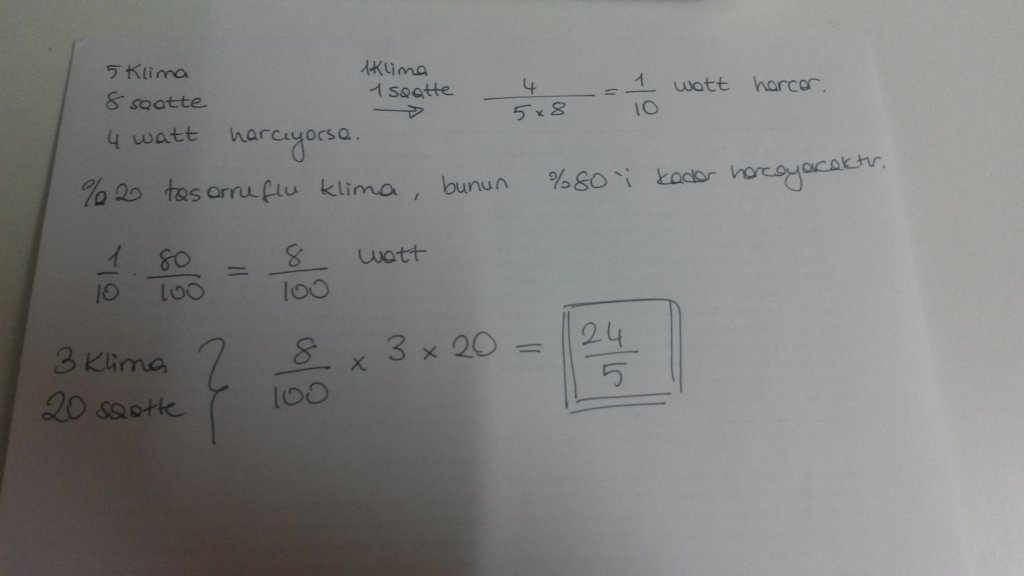 5 Klima
8 saatte
4 watt harcıyorsa.
1 Klima
1 saatte
→
4 / 5 x 8 = 1 / 10 watt harcar.
%20 tasarruflu klima, bunun %80'i kadar harcayacaktır.
1 / 10 . 80 / 100 = 8 / 100 watt
3 Klima
20 saatte
} 8 / 100 x 3 x 20 = 24 / 5